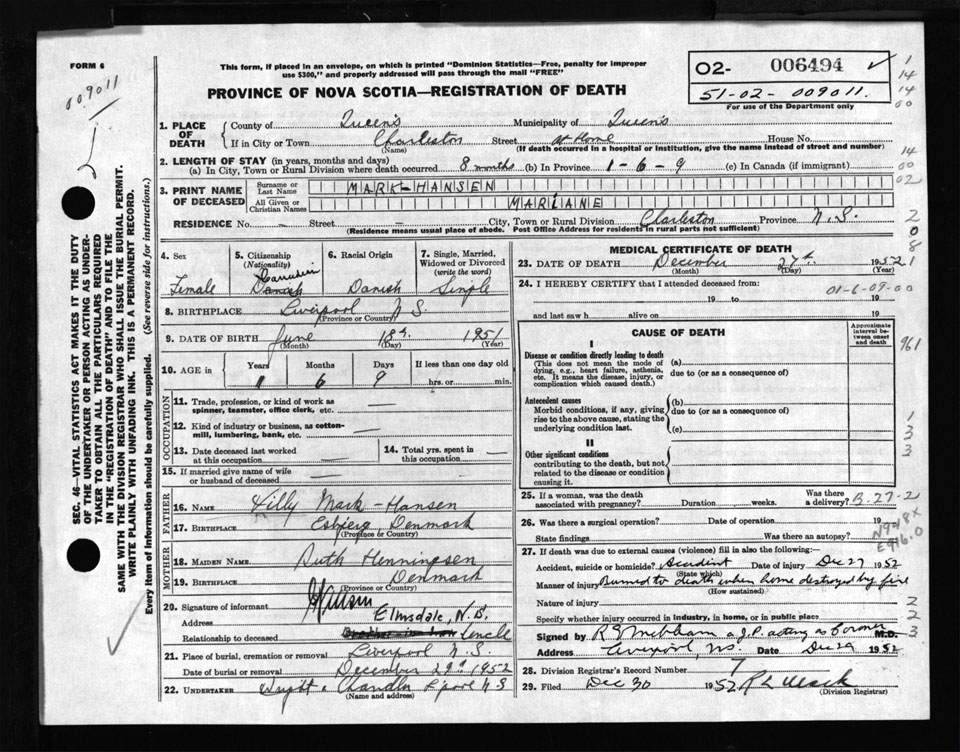 FORM 6
This form, if placed in an envelope, on which is printed "Dominion Statistics—Free, penalty for improper
use $300," and properly addressed will pass through the mail "FREE"
PROVINCE OF NOVA SCOTIA—REGISTRATION OF DEATH
02- 006494
51-02-009011.
For use of the Department only
009011
1. PLACE OF DEATH { County of Queen's Municipality of Queen's
If in City or Town Charleston Street at Home House No.
(Name) (If death occurred in a hospital or institution, give the name instead of street and number)
2. LENGTH OF STAY (in years, months and days)
(a) In City, Town or Rural Division where death occurred 8 months (b) In Province 1-6-9 (c) In Canada (if immigrant)
3. PRINT NAME OF DECEASED { Surname or Last Name MARK-HANSEN
All Given or Christian Names MARIANE
RESIDENCE No. — Street — City, Town or Rural Division Charleston Province N.S.
(Residence means usual place of abode. Post Office Address for residents in rural parts not sufficient)
4. Sex
Female
5. Citizenship (Nationality)
Canadian
Danish
6. Racial Origin
Danish
7. Single, Married, Widowed or Divorced (write the word)
Single
8. BIRTHPLACE Liverpool N.S.
(Province or Country)
9. DATE OF BIRTH June 18th 1951
(Month) (Day) (Year)
10. AGE in { Years Months Days If less than one day
1 6 9 hrs. or min.
OCCUPATION
11. Trade, profession, or kind of work as spinner, teamster, office clerk, etc. —
12. Kind of industry or business, as cotton-mill, lumbering, bank, etc. —
13. Date deceased last worked at this occupation —
14. Total yrs. spent in this occupation —
15. If married give name of wife or husband of deceased —
FATHER
16. NAME Villy Mark-Hansen
17. BIRTHPLACE Esbjerg Denmark
(Province or Country)
MOTHER
18. MAIDEN NAME Ruth Henningsen
19. BIRTHPLACE Denmark
(Province or Country)
20. Signature of informant
Address Elmsdale, N.B.
Relationship to deceased Uncle
21. Place of burial, cremation or removal Liverpool N.S.
Date of burial or removal December 29th 1952
22. UNDERTAKER Chandler L'pool N S
(Name and address)
MEDICAL CERTIFICATE OF DEATH
23. DATE OF DEATH December 27th 1952
(Month) (Day) (Year)
24. I HEREBY CERTIFY that I attended deceased from:
19 to 19
01-6-09-00
and last saw h alive on 19
CAUSE OF DEATH
Approximate interval between onset and death
I
Disease or condition directly leading to death (a)
(This does not mean the mode of dying, e.g., heart failure, asthenia, etc. It means the disease, injury, or complication which caused death.)
due to (or as a consequence of)
Antecedent causes (b)
Morbid conditions, if any, giving rise to the above cause, stating the underlying condition last.
due to (or as a consequence of)
(c)
II
Other significant conditions
contributing to the death, but not related to the disease or condition causing it.
25. If a woman, was the death associated with pregnancy? Duration weeks. Was there a delivery?
B-27-2
26. Was there a surgical operation? Date of operation 19
State findings Was there an autopsy?
E916.0
27. If death was due to external causes (violence) fill in also the following:—
Accident, suicide or homicide? Accident Date of injury Dec 27 1952
(State which)
Manner of injury Burned to death when home destroyed by fire
(How sustained)
Nature of injury
Specify whether injury occurred in industry, in home, or in public place
Signed by a J.P. acting as Coroner M.D.
Address Liverpool, NS. Date Dec 29 1952
28. Division Registrar's Record Number 7
29. Filed Dec 30 1952
(Division Registrar)
SEC. 46—VITAL STATISTICS ACT MAKES IT THE DUTY
OF THE UNDERTAKER OR PERSON ACTING AS UNDER-
TAKER TO OBTAIN ALL THE PARTICULARS REQUIRED
IN THE "REGISTRATION OF DEATH" AND TO FILE THE
SAME WITH THE DIVISION REGISTRAR WHO SHALL ISSUE THE BURIAL PERMIT.
WRITE PLAINLY WITH UNFADING INK. THIS IS A PERMANENT RECORD.
Every item of information should be carefully supplied. (See reverse side for instructions.)
1
14
14
00
14
00
02
2
0
8
1
961
1
3
3
2
2
3